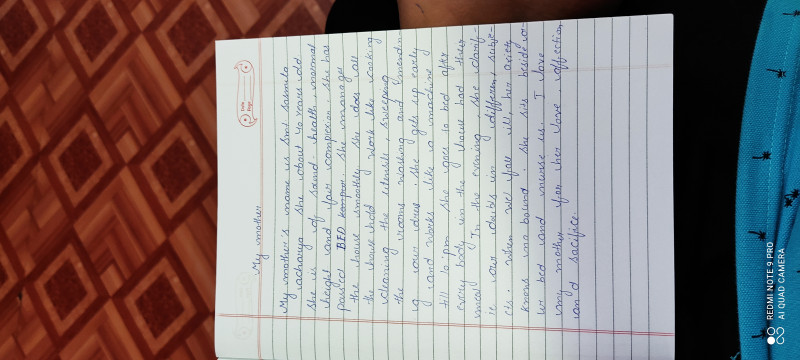 My mother
My mother's name is Smt Sasmita
acharya she about 40 years old
she is of sound health, normal
height and fair complexion, she has
passed BED kanpur she manages
the house smoothly she does all
the house hold work like cooking
cleaning the utensils, sweeping
the rooms washing and
g our dress, she gets up early
and works like a machine
till 10 pm she goes to bed after
every body in the house had their
meal In the evening she clarif-
ie our doubts in different subje-
cts when we fall ill her
knows no bound. she sits beside
bed and nurse us. I love
my mother for her love, affection
and sacifice
REDMI NOTE 9 PRO
AI QUAD CAMERA